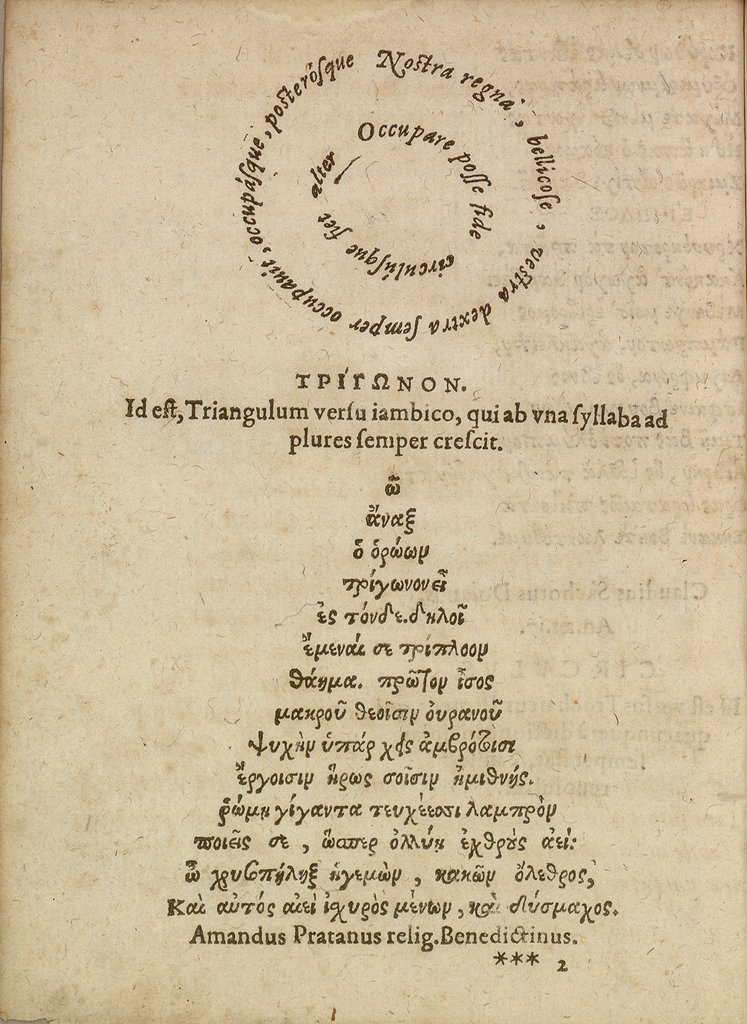 Nostra regna, bellicose, vestra dextra semper occupavit, occupásque, posterósque
Occupare posse fide circulúsque fiet alter
ΤΡΙΓΩΝΟΝ.
Id est, Triangulum versu iambico, qui ab vna syllaba ad
plures semper crescit.
ὦ
ἄναξ
ὁ ὁρώων
τρίγωνον εἶ
ἐς τόνδε. δηλοῖ
ἔμεναί σε τρίπλοον
θάημα. πρῶτον ἶσος
μακροῦ θεοῖσιν ὀυρανοῦ
Ψυχὴν ὑπάρχεις ἀμβρότοισι
ἔργοισιν ἥρως σοῖσιν ἡμιθνής.
ῥώμη γίγαντα τευχέεσσι λαμπρὸν
ποιεῖς σε, ὥσπερ ὀλλύῃ ἐχθροὺς ἀεί:
ὦ χρυσπήληξ ἡγεμὼν, κακῶν ὄλεθρος,
Καὶ αὐτός αἰεὶ ἰχυρὸς μένων, καὶ δύσμαχος.
Amandus Pratanus relig. Benedictinus.
*** 2